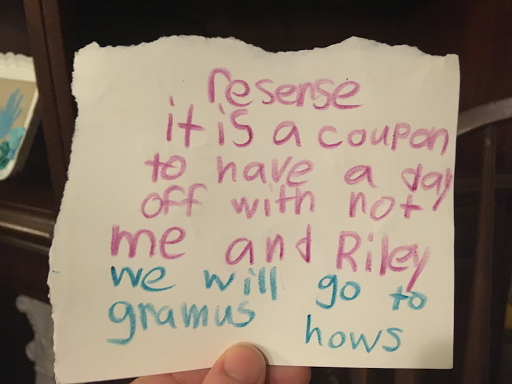 resense
it is a coupon
to have a day
off with not
me and Riley
we will go to
gramus hows